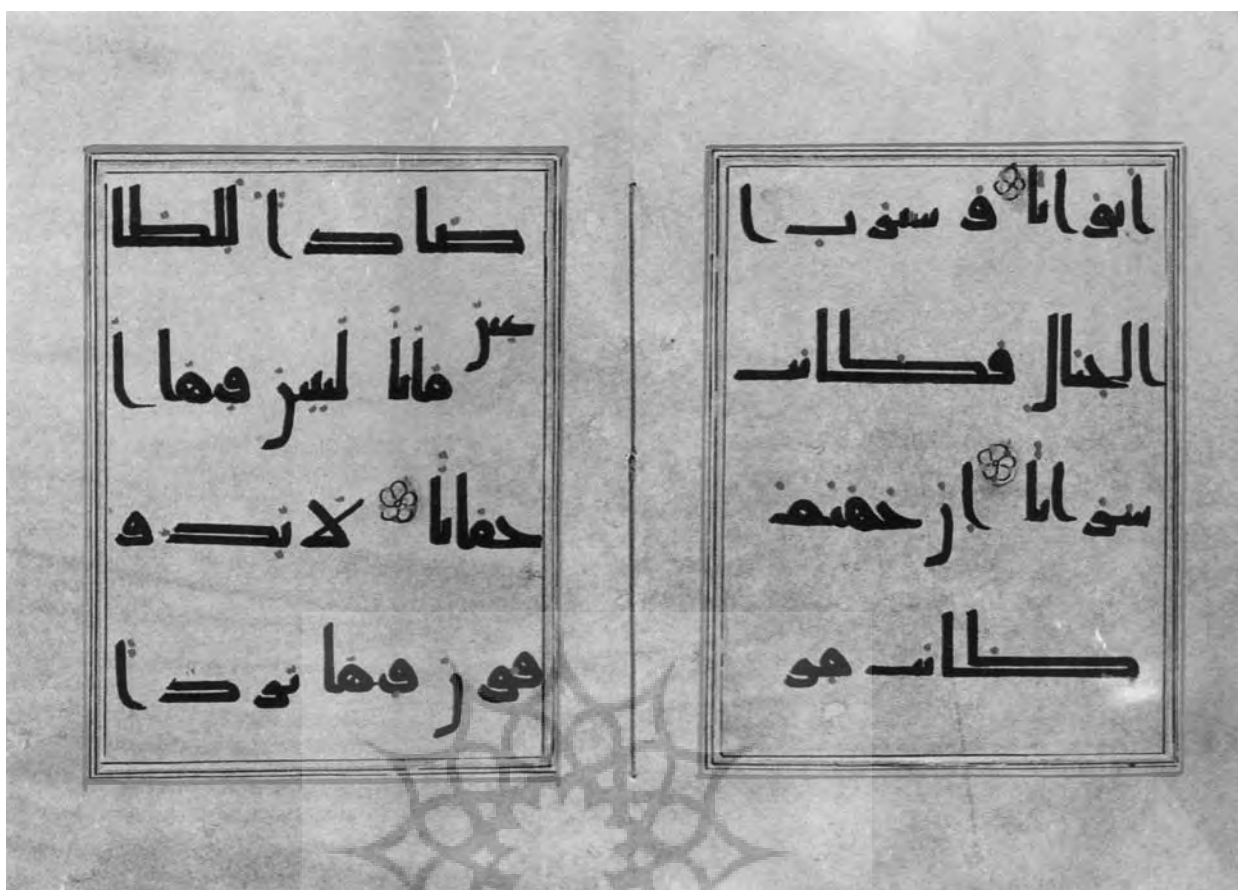 ابوابا وسيرت ا
الجبال فكانت
سرابا ان جهنم
كانت مر
صادا للطا
غين مابا لبثين فيها ا
حقابا لا يذو
قون فيها بردا